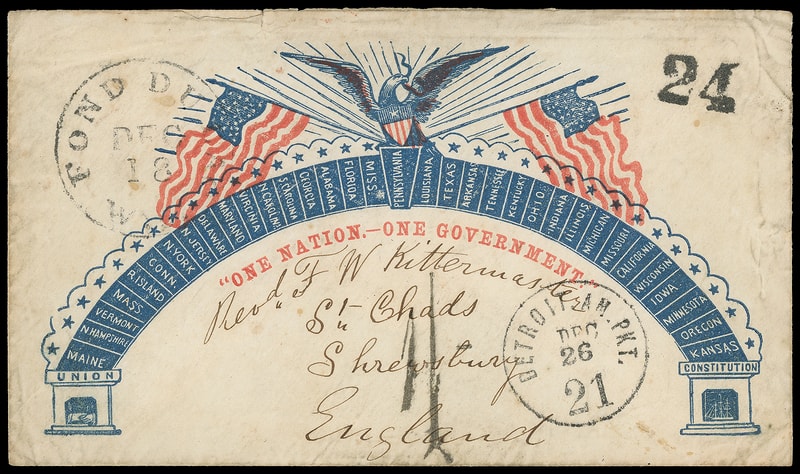 FOND DU
DEC
18
W
24
MAINE
N HAMPSHIRE
VERMONT
MASS.
R.ISLAND
CONN.
N.YORK
N JERSEY
DELAWARE
MARYLAND
VIRGINIA
N CAROLINA
S.CAROLINA
GEORGIA
ALABAMA
FLORIDA
MISS.
PENNSYLVANIA
LOUISIANA
TEXAS
ARKANSAS
TENNESSEE
KENTUCKY
OHIO
INDIANA
ILLINOIS
MICHIGAN
MISSOURI
CALIFORNIA
WISCONSIN
IOWA
MINNESOTA
OREGON
KANSAS
"ONE NATION.—ONE GOVERNMENT."
Revd. F W Kittermaster
St. Chads
Shrewsbury
England
DETROIT AM. PKT.
DEC
26
21
UNION
CONSTITUTION